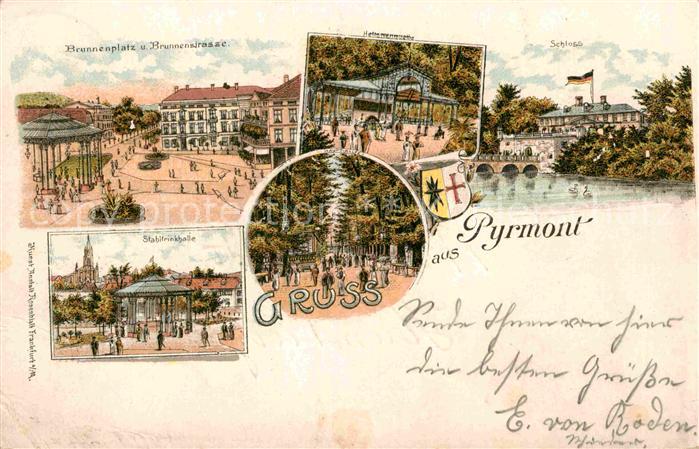 Brunnenplatz u. Brunnenstrasse.
Helenenquelle
Schloss
Stahltrinkhalle
GRUSS
aus
Pyrmont
Kunst Anstalt Rosenblatt Frankfurt a/M.
Sende Ihnen von hier
die besten Grüße
E. von Roden.